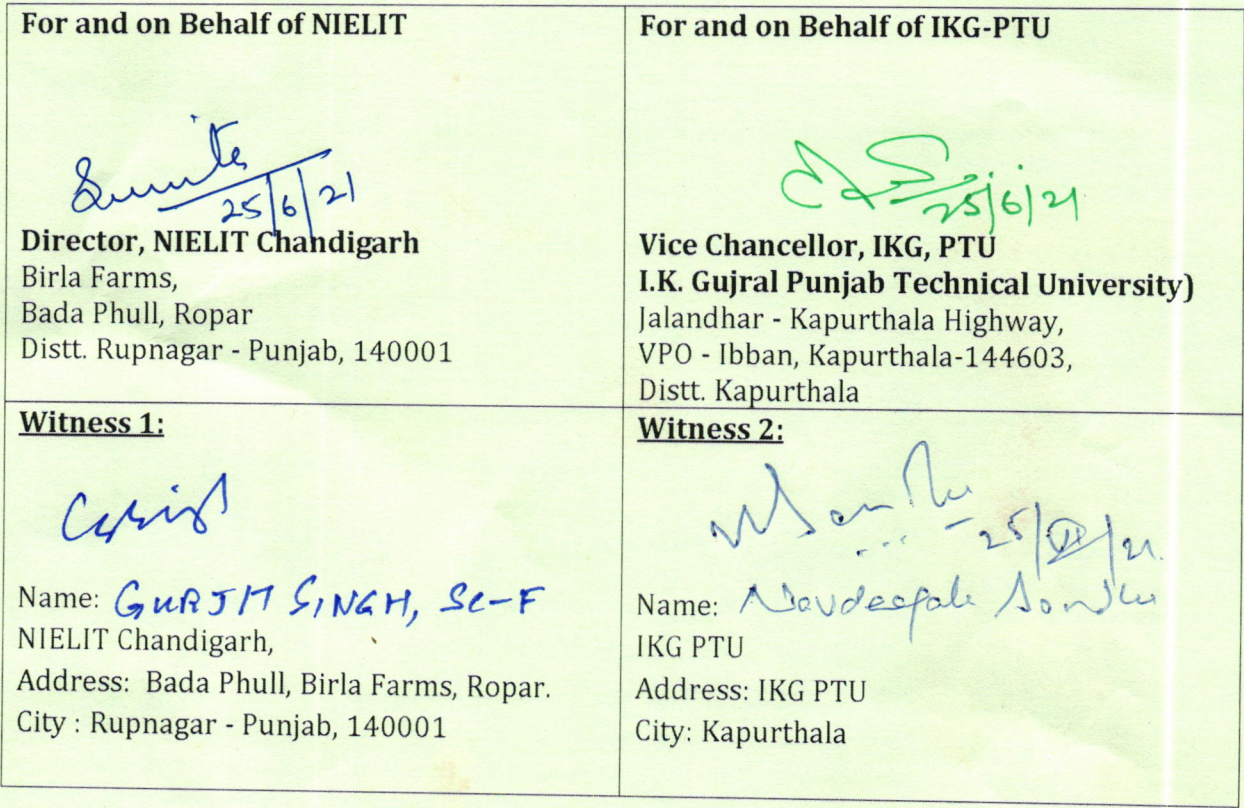 For and on Behalf of NIELIT
Sunita
25/6/21
Director, NIELIT Chandigarh
Birla Farms,
Bada Phull, Ropar
Distt. Rupnagar - Punjab, 140001
For and on Behalf of IKG-PTU
25/6/21
Vice Chancellor, IKG, PTU
I.K. Gujral Punjab Technical University)
Jalandhar - Kapurthala Highway,
VPO - Ibban, Kapurthala-144603,
Distt. Kapurthala
Witness 1:
Name: GURJIT SINGH, SC-F
NIELIT Chandigarh,
Address: Bada Phull, Birla Farms, Ropar.
City : Rupnagar - Punjab, 140001
Witness 2:
25/VI/21.
Name: Navdeepak Sandhu
IKG PTU
Address: IKG PTU
City: Kapurthala